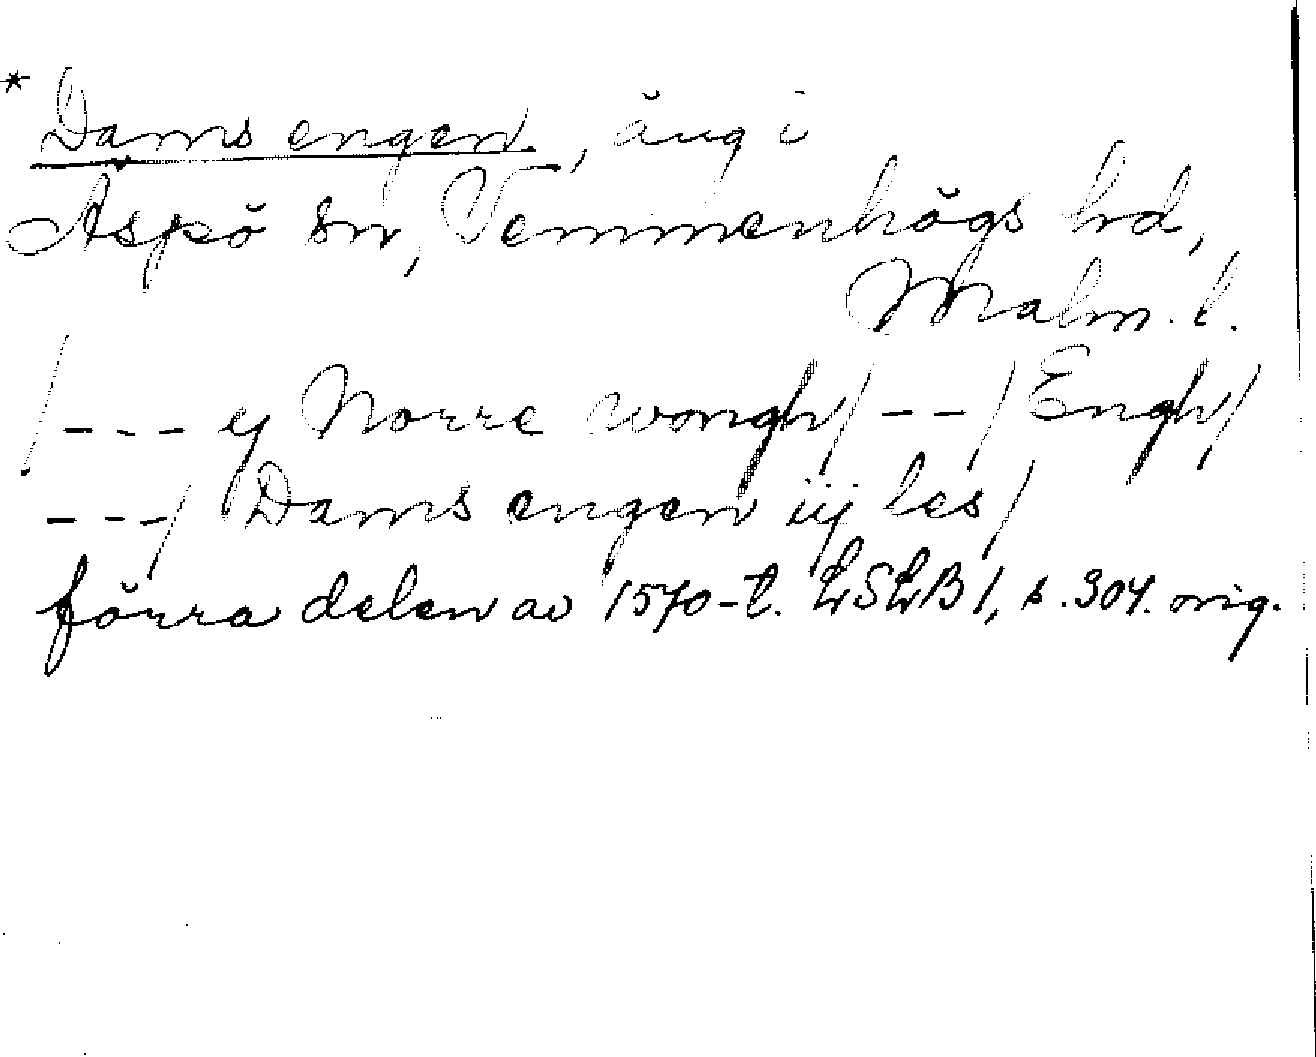 * Dams engen, äng i
Äspö sn, Vemmenhögs hd,
Malm. l.
/--- y Norre wongh/ -- / Engh/
---/ Dams engen iij les/
förra delen av 1570-t. LSLB 1, s. 304. orig.